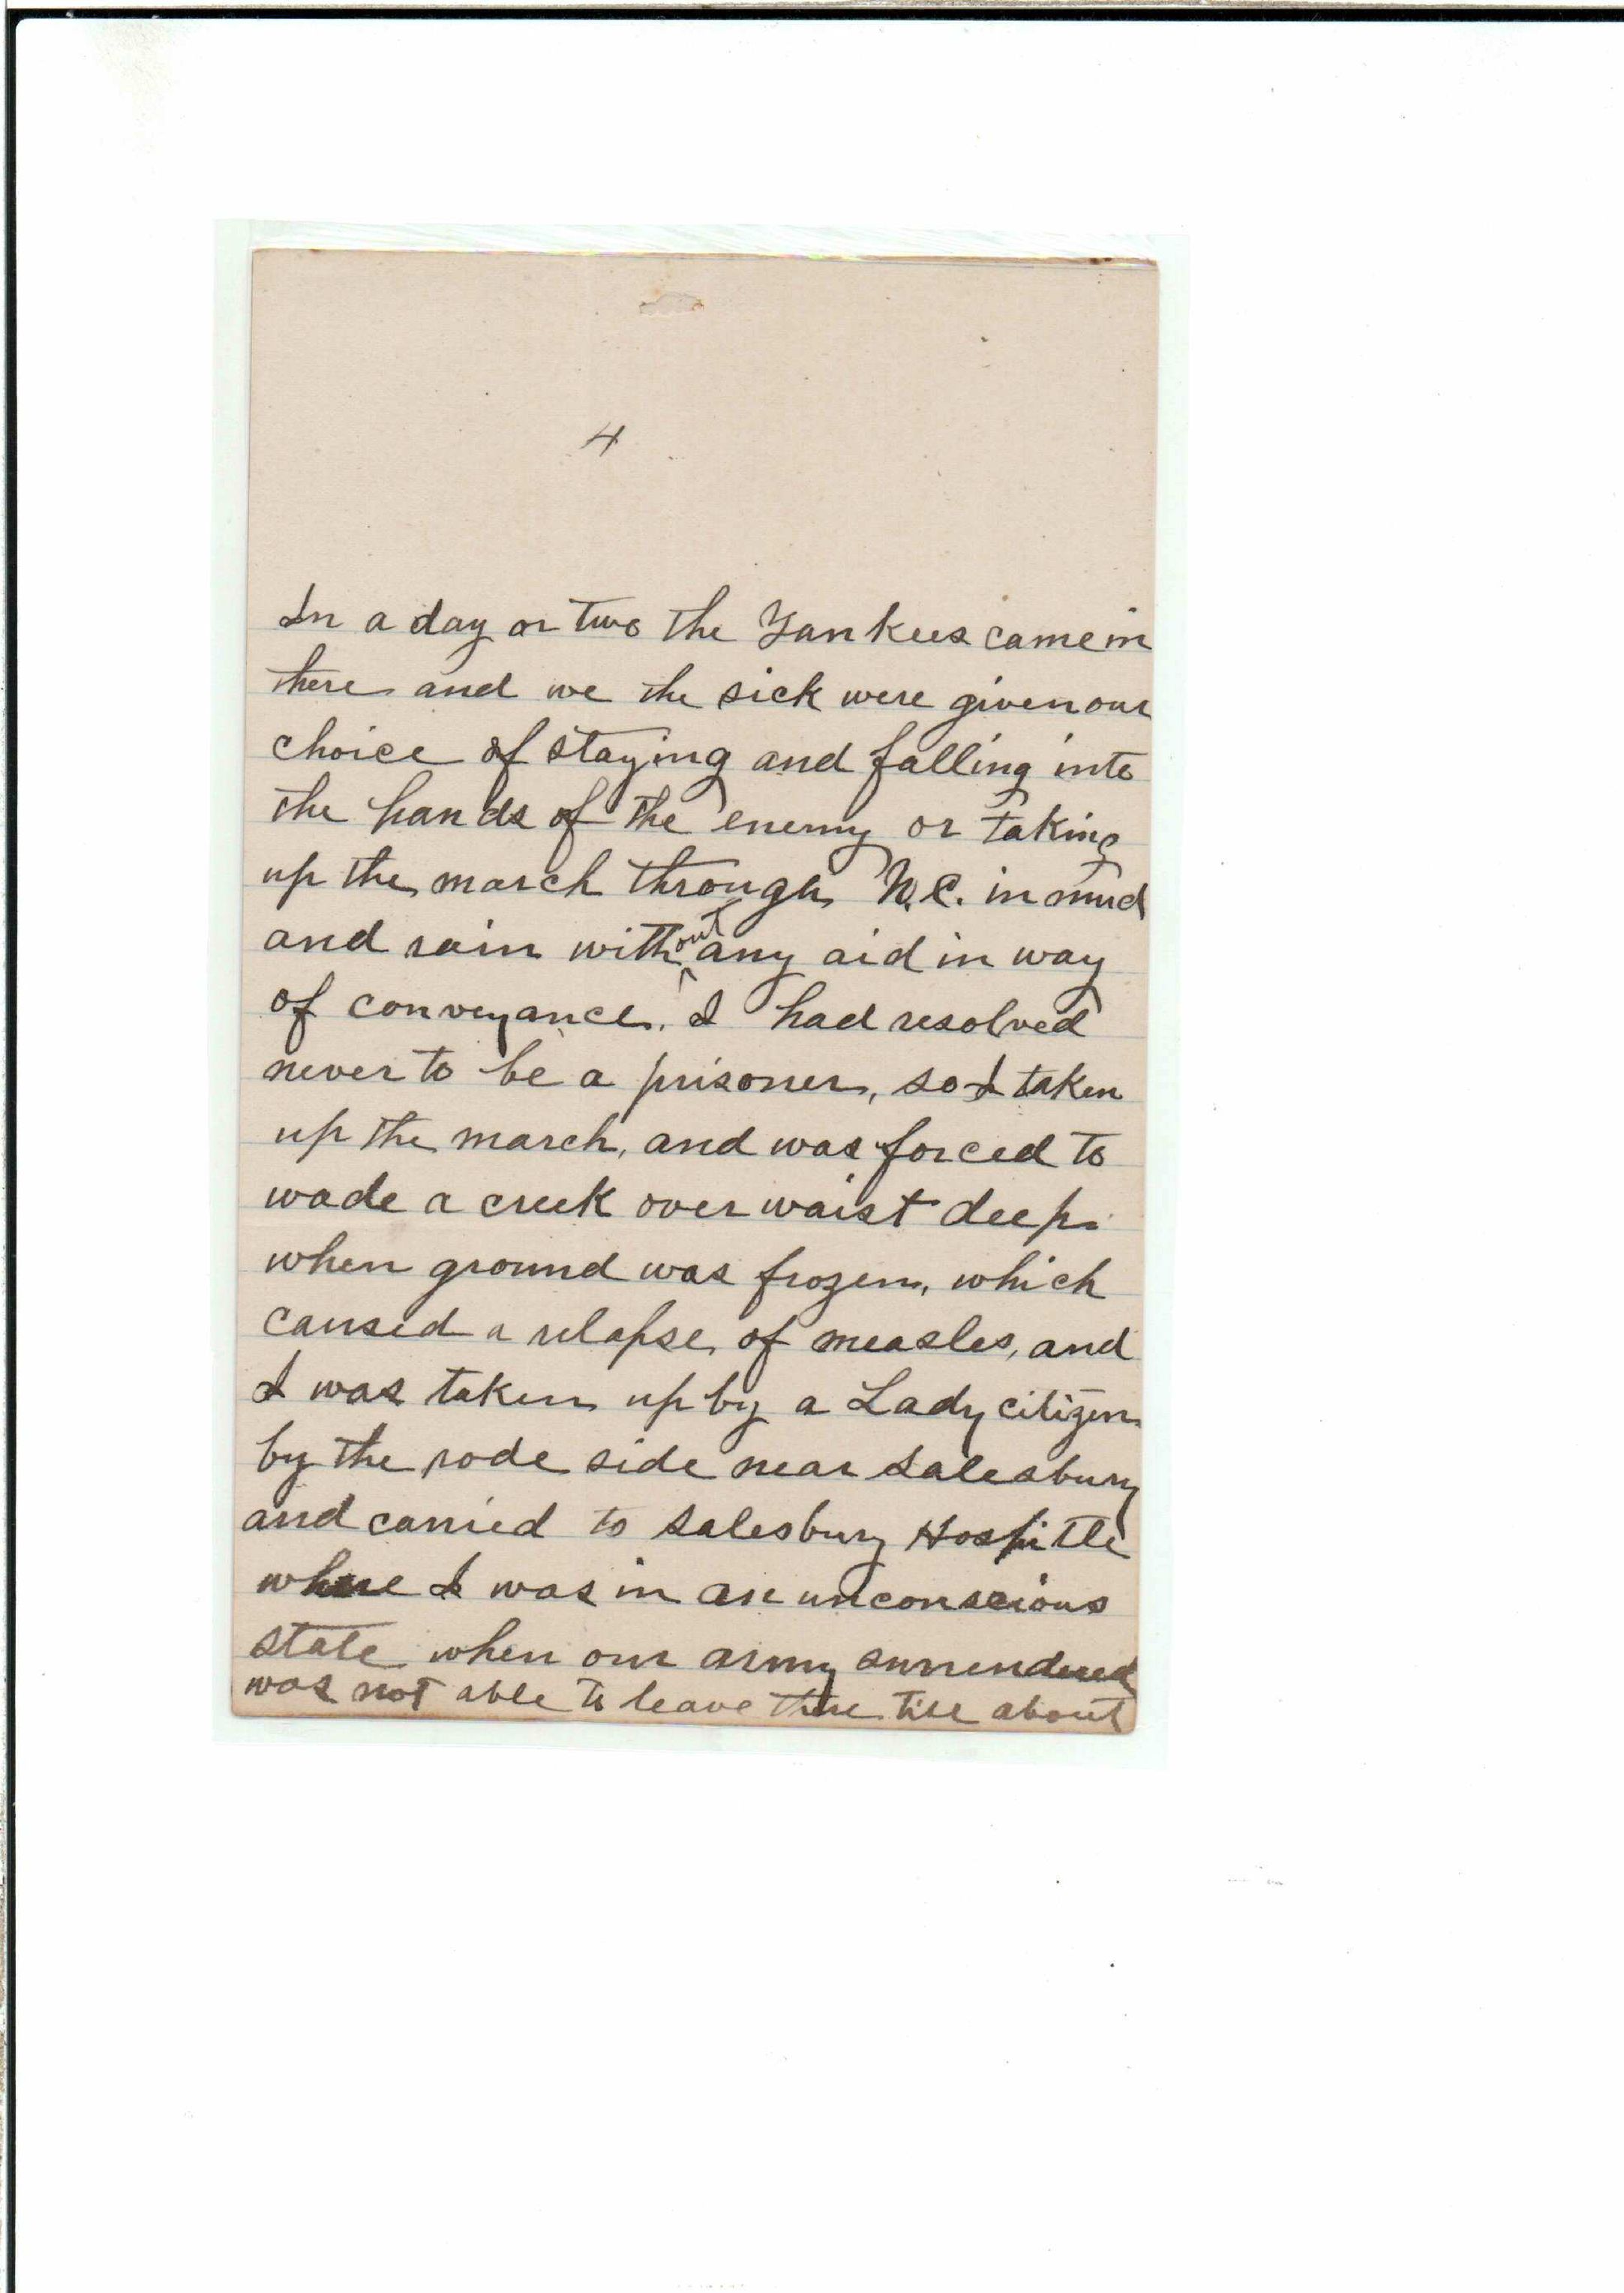 4
In a day or two the Yankees came in
there and we the sick were given our
choice of staying and falling into
the hands of the enemy or taking
up the march through N.C. in mud
and rain without any aid in way
of conveyance. I had resolved
never to be a prisoner, so I taken
up the march, and was forced to
wade a creek over waist deep
when ground was frozen, which
caused a relapse of measles, and
I was taken up by a Lady citizen
by the rode side near Salesbury
and carried to Salesbury Hospitle
where I was in an unconscious
state when our army surrendered
was not able to leave there till about